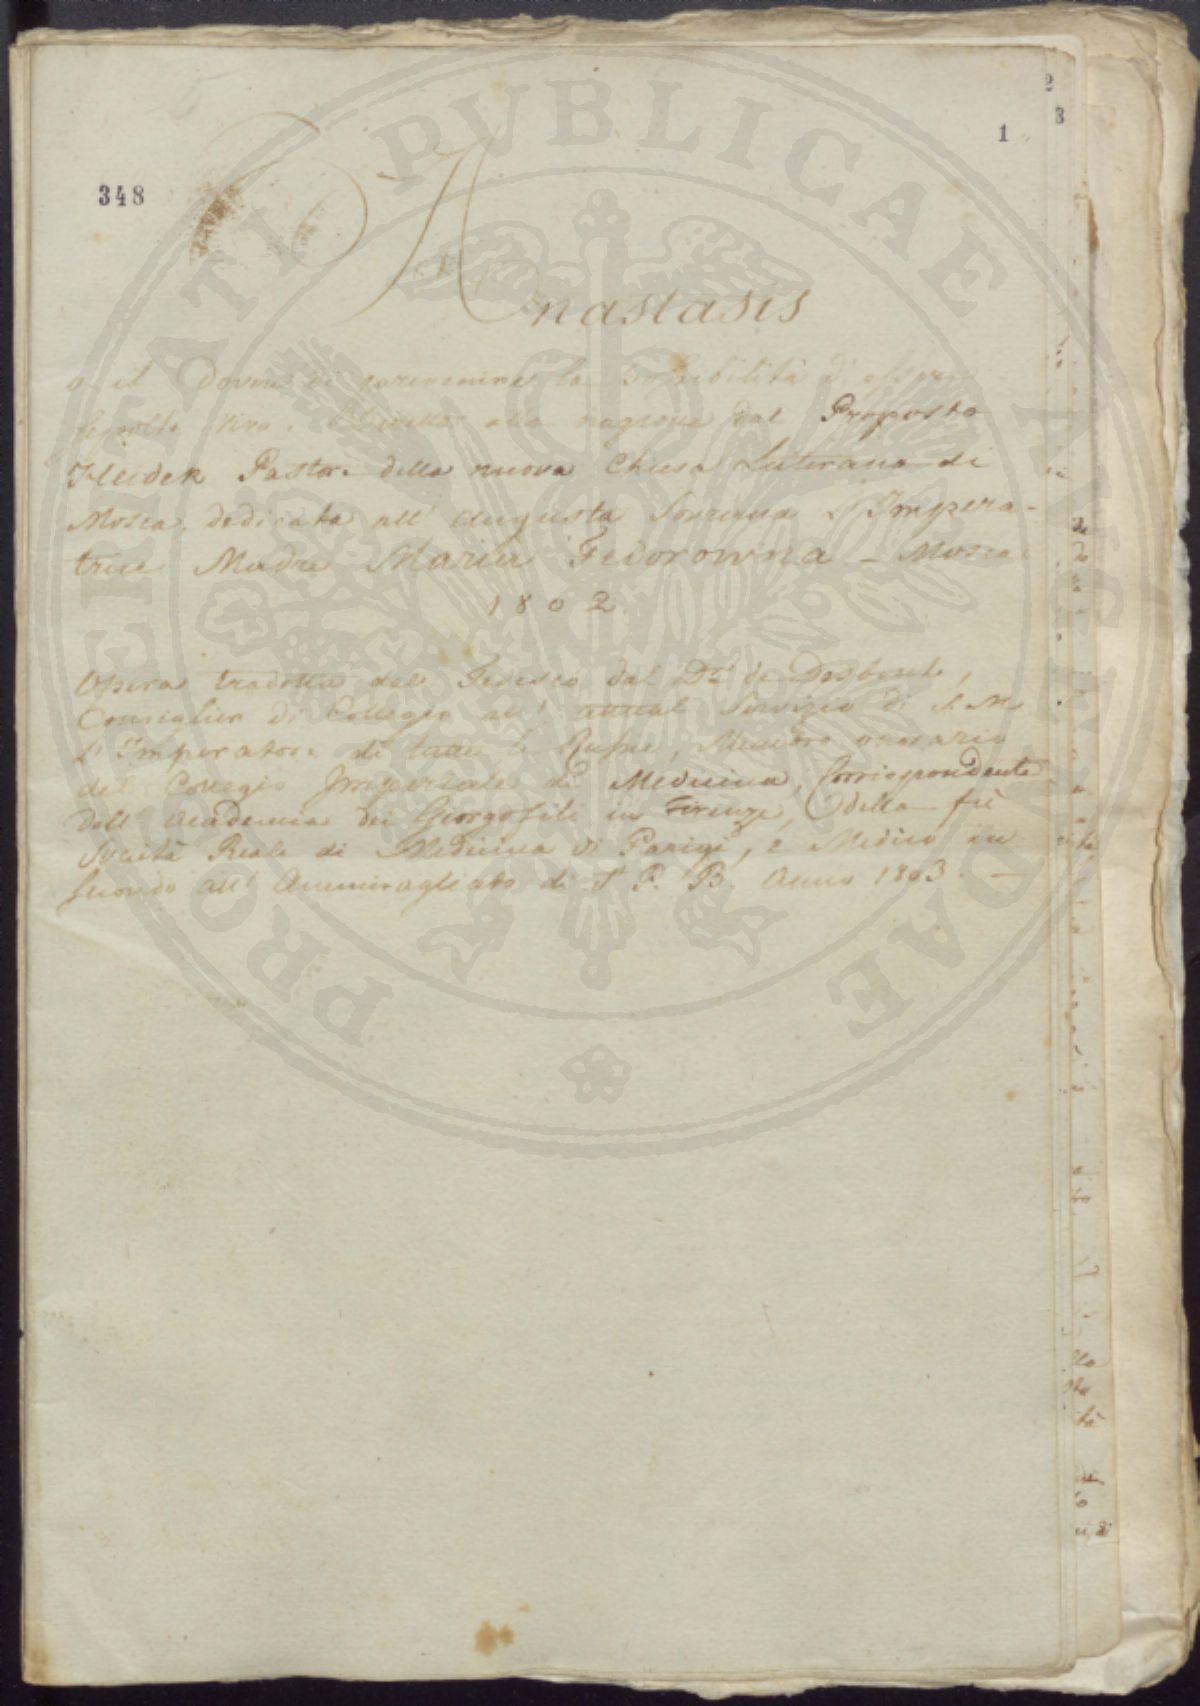 2
3
1
348
PROSPERITATI PUBLICAE AUGENDAE
Anastasis
o il Dovere di prevenire la possibilità d'essere
sepolto vivo. Diretto alla nazione dal Proposto
Heidek Pastore della nuova Chiesa Luterana di
Mosca, dedicata all' Augusta Sovrana L'Impera-
trice Madre Maria Fedorowna – Mosca
1802
Opera tradotta dal Tedesco dal Dr. de Desbout,
Consiglier di Collegio all' attual Servizio di S. M.
L'Imperatore di tutte le Russie, Membro onorario
del Collegio Imperiale di Medicina, Corrispondente
dell' Academia dei Georgofili in Firenze, della fù
Società Reale di Medicina di Parigi, e Medico in
secondo all' Ammiragliato di S. P. B. Anno 1803. —